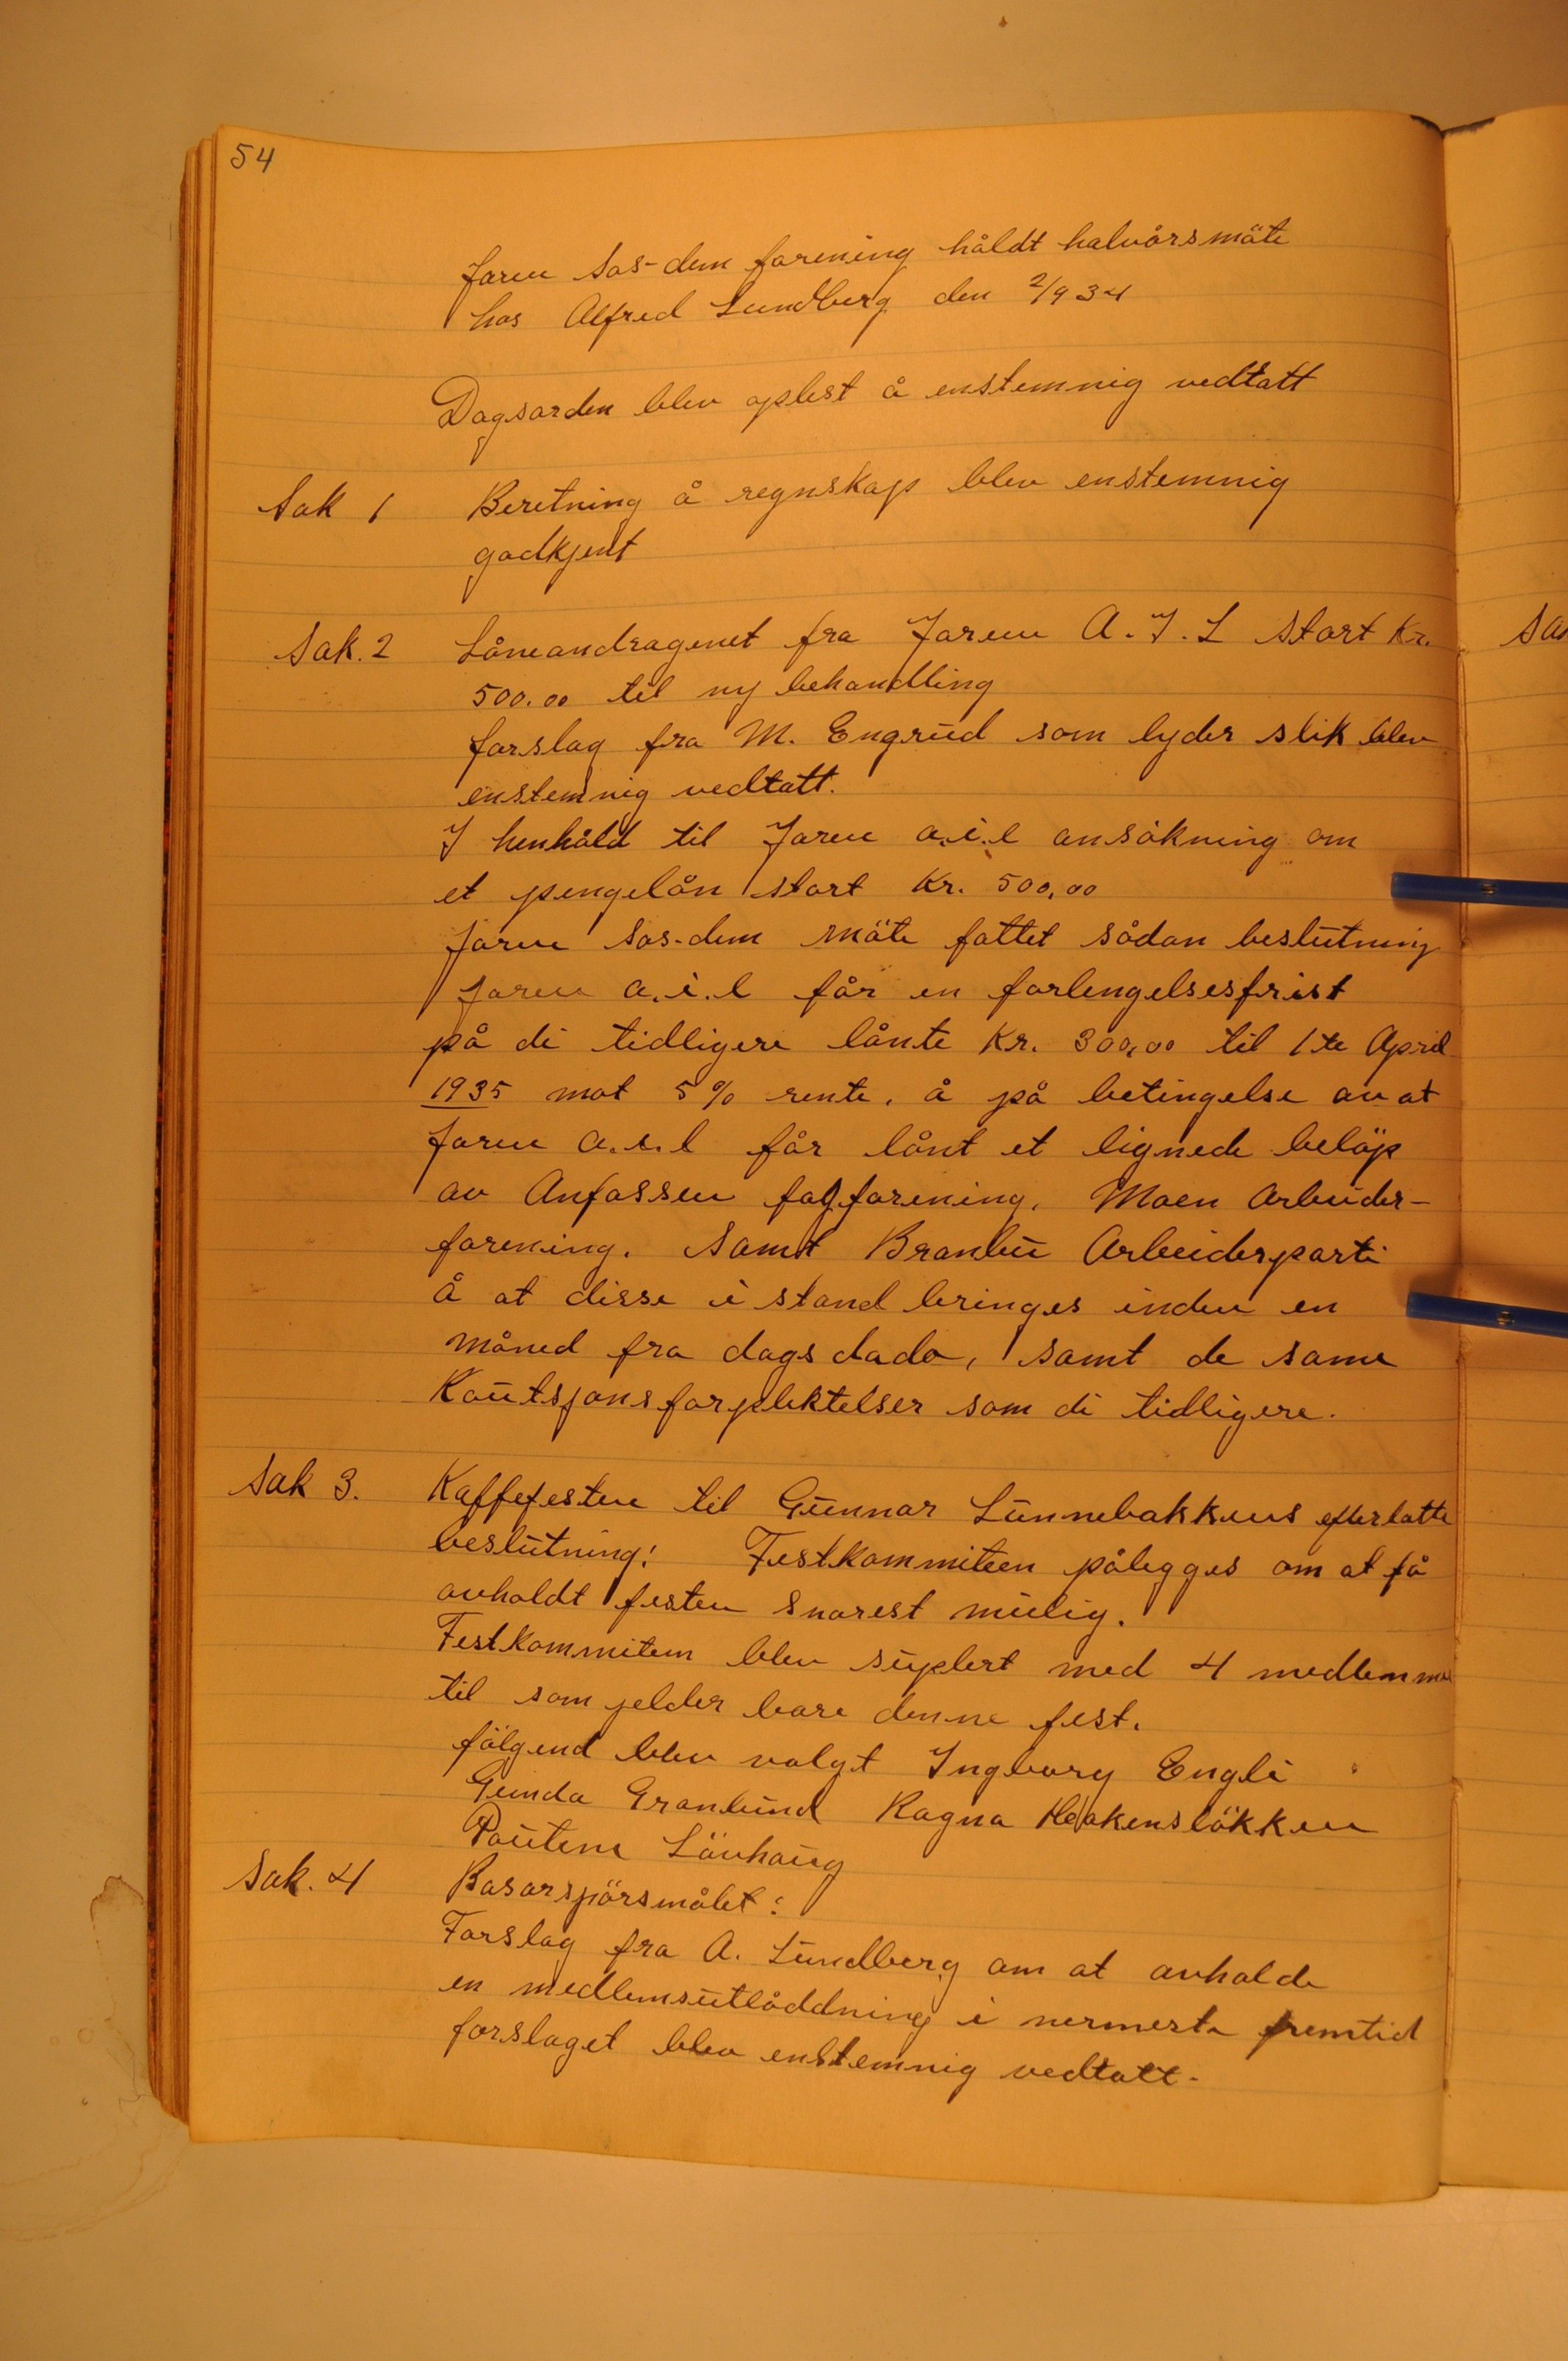 54
Jaren Sos-dem forening håldt halvårsmöte
hos Alfred Lundberg den 2/9 34
Dagsorden blev oplest å enstemnig vedtatt
Sak 1 Beretning å regnskap blev enstemnig
godkjent
Sak. 2 Låneandragenet fra Jaren A.I.L stort Kr.
500.00 til ny behandling
forslag fra M. Engrud som lyder slik blev
enstemnig vedtatt.
I henhåld til Jaren a.i.l ansökning om
et pengelån stort Kr. 500,00
Jaren Sos-dem möte fattet sådan beslutning
Jaren a.i.l får en forlengelsesfrist
på di tidligere lånte Kr. 300,00 til 1te April
1935 mot 5% rente. å på betingelse av at
Jaren a.i.l får lånt et lignede belöp
av Anfossen fagforening. Moen Arbeider-
forening. Samt Branbu Arbeiderparti
Å at disse i stand bringes inden en
måned fra dags dado, samt de same
Kautsjonsforpliktelser som di tidligere.
Sak 3. Kaffefesten til Gunnar Lunnebakkens efterlatte
beslutning! Festkommiteen pålegges om at få
avholdt festen snarest mulig.
Festkommiteen blev suplert med 4 medlemmer
til som jelder bare denne fest.
fölgend blev valgt Ingborg Engli
Gunda Granlund Ragna Haakenslökken
Paulene Lövhaug
Sak. 4 Basarspörsmålet:
Forslag fra A. Lundberg om at avholde
en medlemsutloddning i nermeste fremtid
forslaget blev enstemnig vedtatt.
Sa